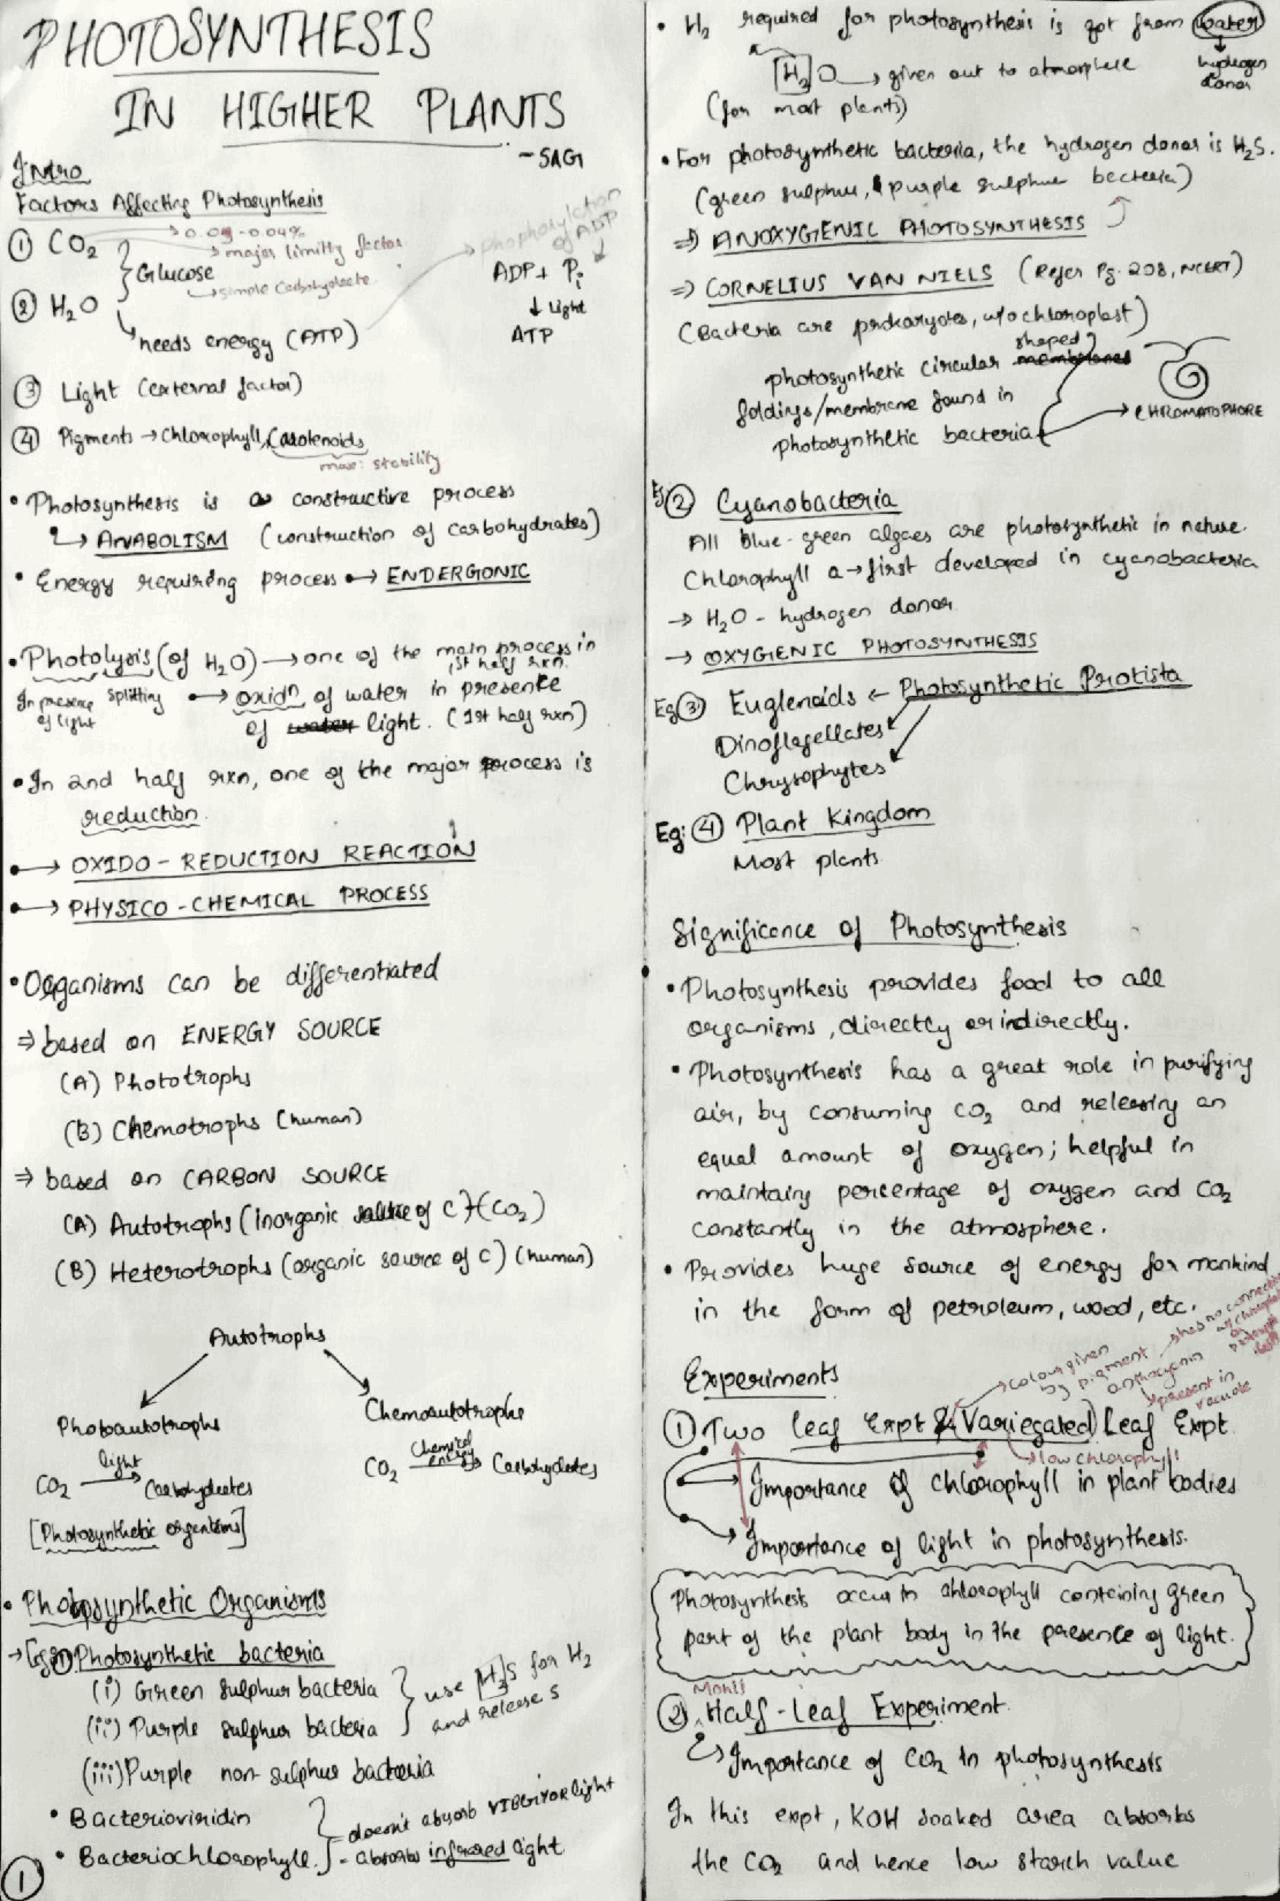 PHOTOSYNTHESIS
IN HIGHER PLANTS
~SAGI
Intro
Factors Affecting Photosynthesis
① CO₂
→ 0.03-0.04%
→ major limitg factor
Glucose
→ simple Carbohydrate
② H₂O
needs energy (ATP)
phophorylation
of ADP
ADP + Pi
↓ Light
ATP
③ Light (external factor)
④ Pigments → Chlorophyll, Carotenoids
max: stability
• Photosynthesis is a constructive process
↳ ANABOLISM (construction of carbohydrates)
• Energy requiring process → ENDERGONIC
• Photolysis (of H₂O) → one of the main process in
1st half rxn.
In presence of light
splitting
→ oxidⁿ of water in presence
of water light. (1st half rxn)
• In 2nd half rxn, one of the major process is
reduction.
→ OXIDO-REDUCTION REACTION
→ PHYSICO-CHEMICAL PROCESS
• Organisms can be differentiated
⇒ based on ENERGY SOURCE
(A) Phototrophs
(B) Chemotrophs (human)
⇒ based on CARBON SOURCE
(A) Autotrophs (inorganic source of C) (CO₂)
(B) Heterotrophs (organic source of C) (human)
Autotrophs
Photoautotrophs
Chemoautotrophs
CO₂ light → Carbohydrates
CO₂ Chemical energy → Carbohydrates
[Photosynthetic organisms]
• Photosynthetic Organisms
→ Eg: ① Photosynthetic bacteria
(i) Green sulphur bacteria
(ii) Purple sulphur bacteria
use H₂S for H₂
and release S
(iii) Purple non-sulphur bacteria
• Bacterioviridin
• Bacteriochlorophyll
- doesn't absorb VIBGYOR light
- absorbs infrared light
①
• H₂ required for photosynthesis is got from water
↓ hydrogen donor
H₂O → given out to atmosphere
(for most plants)
• For photosynthetic bacteria, the hydrogen donor is H₂S.
(green sulphur, & purple sulphur bacteria)
⇒ ANOXYGENIC PHOTOSYNTHESIS
⇒ CORNELIUS VAN NIELS (Refer Pg. 208, NCERT)
(Bacteria are prokaryotes, w/o chloroplast)
photosynthetic circular shaped membranes
foldings/membrane found in
photosynthetic bacteria
→ CHROMATOPHORE
Eg ② Cyanobacteria
All blue-green algaes are photosynthetic in nature.
Chlorophyll a → first developed in cyanobacteria
→ H₂O - hydrogen donor
→ OXYGENIC PHOTOSYNTHESIS
Eg ③ Euglenoids ← Photosynthetic Protista
Dinoflagellates
Chrysophytes
Eg: ④ Plant Kingdom
Most plants
Significance of Photosynthesis
• Photosynthesis provides food to all
organisms, directly or indirectly.
• Photosynthesis has a great role in purifying
air, by consuming CO₂ and releasing an
equal amount of oxygen; helpful in
maintaing percentage of oxygen and CO₂
constantly in the atmosphere.
• Provides huge source of energy for mankind
in the form of petroleum, wood, etc.
Experiments
→ colour given
by pigment
anthocyanin
→ has no connection
present in
vacuole
① Two leaf Expt & (Variegated) Leaf Expt
→ low chlorophyll
→ Importance of Chlorophyll in plant bodies
→ Importance of light in photosynthesis.
Photosynthesis occur in chlorophyll containing green
part of the plant body in the presence of light.
② Mohll Half-Leaf Experiment
↳ Importance of CO₂ in photosynthesis
In this expt, KOH soaked area absorbs
the CO₂ and hence low starch value